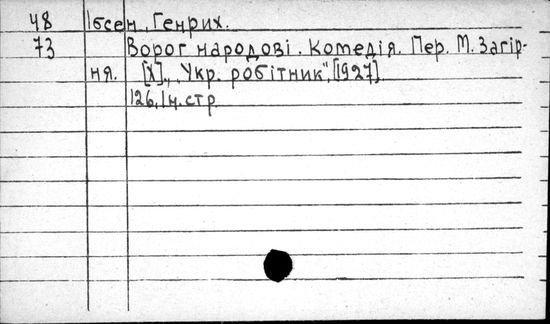 48 Ібсен, Генрих.
73 Ворог народові. Комедія. Пер. М. Загір-
ня. [Х], „Укр. робітник", [1927]
126, 1 н. стр.